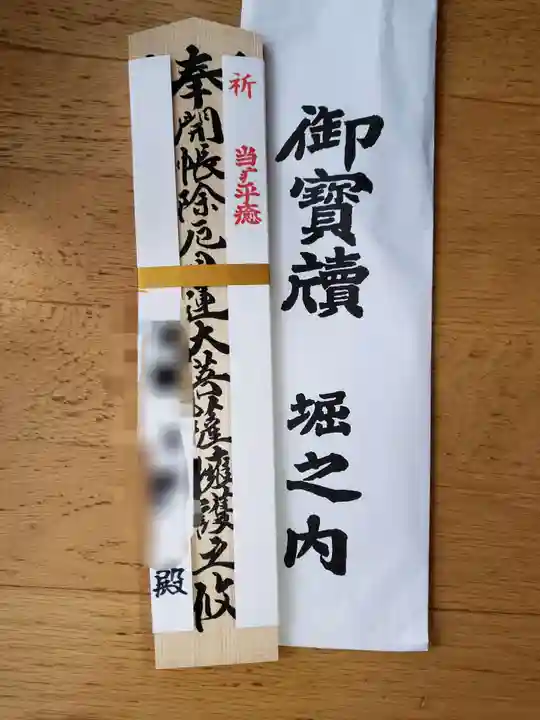 御寶牘 堀之内
祈 当病平癒
奉開帳除厄日蓮大菩薩擁護之攸
殿